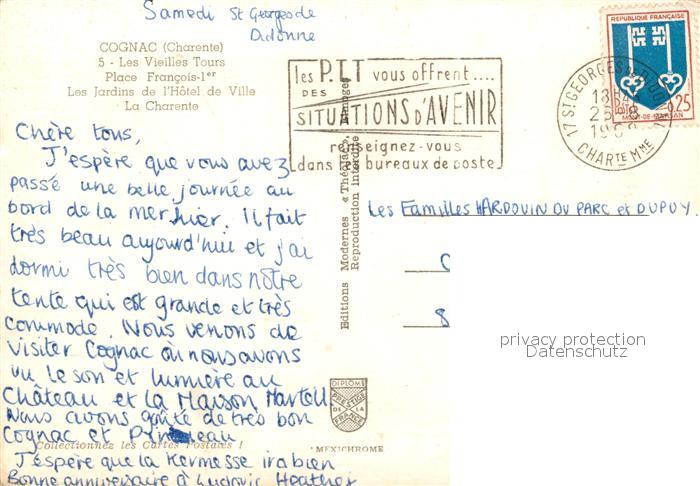 Samedi St Georges de
Didonne
COGNAC (Charente)
5 - Les Vieilles Tours
Place François-1er
Les Jardins de l'Hôtel de Ville
La Charente
Chère tous,
J'espère que vous avez
passé une belle journée au
bord de la mer hier. Il fait
très beau aujourd'hui et j'ai
dormi très bien dans nôtre
tente qui est grande et très
commode. Nous venons de
visiter Cognac où nous avons
vu le son et lumière au
Château et la Maison Martell.
Nous avons goûté de très bon
Cognac et Pineau
Collectionnez les Cartes Postales !
J'espère que la Kermesse ira bien
Bonne anniversaire à Ludovic Heather
les P.ET vous offrent....
DES
SITUATIONS D'AVENIR
renseignez-vous
dans les bureaux de poste
Editions Modernes « Théojac »
Reproduction Interdite
17 ST GEORGES
18H
25
196
CHARTE MME
REPUBLIQUE FRANÇAISE
0,25
MONT-DE-MARSAN
Les Familles HARDOUIN DU PARC et DUPUY.
C
8
privacy protection
Datenschutz
DIPLOME
PRESTIGE
DE LA
FRANCE
"MEXICHROME